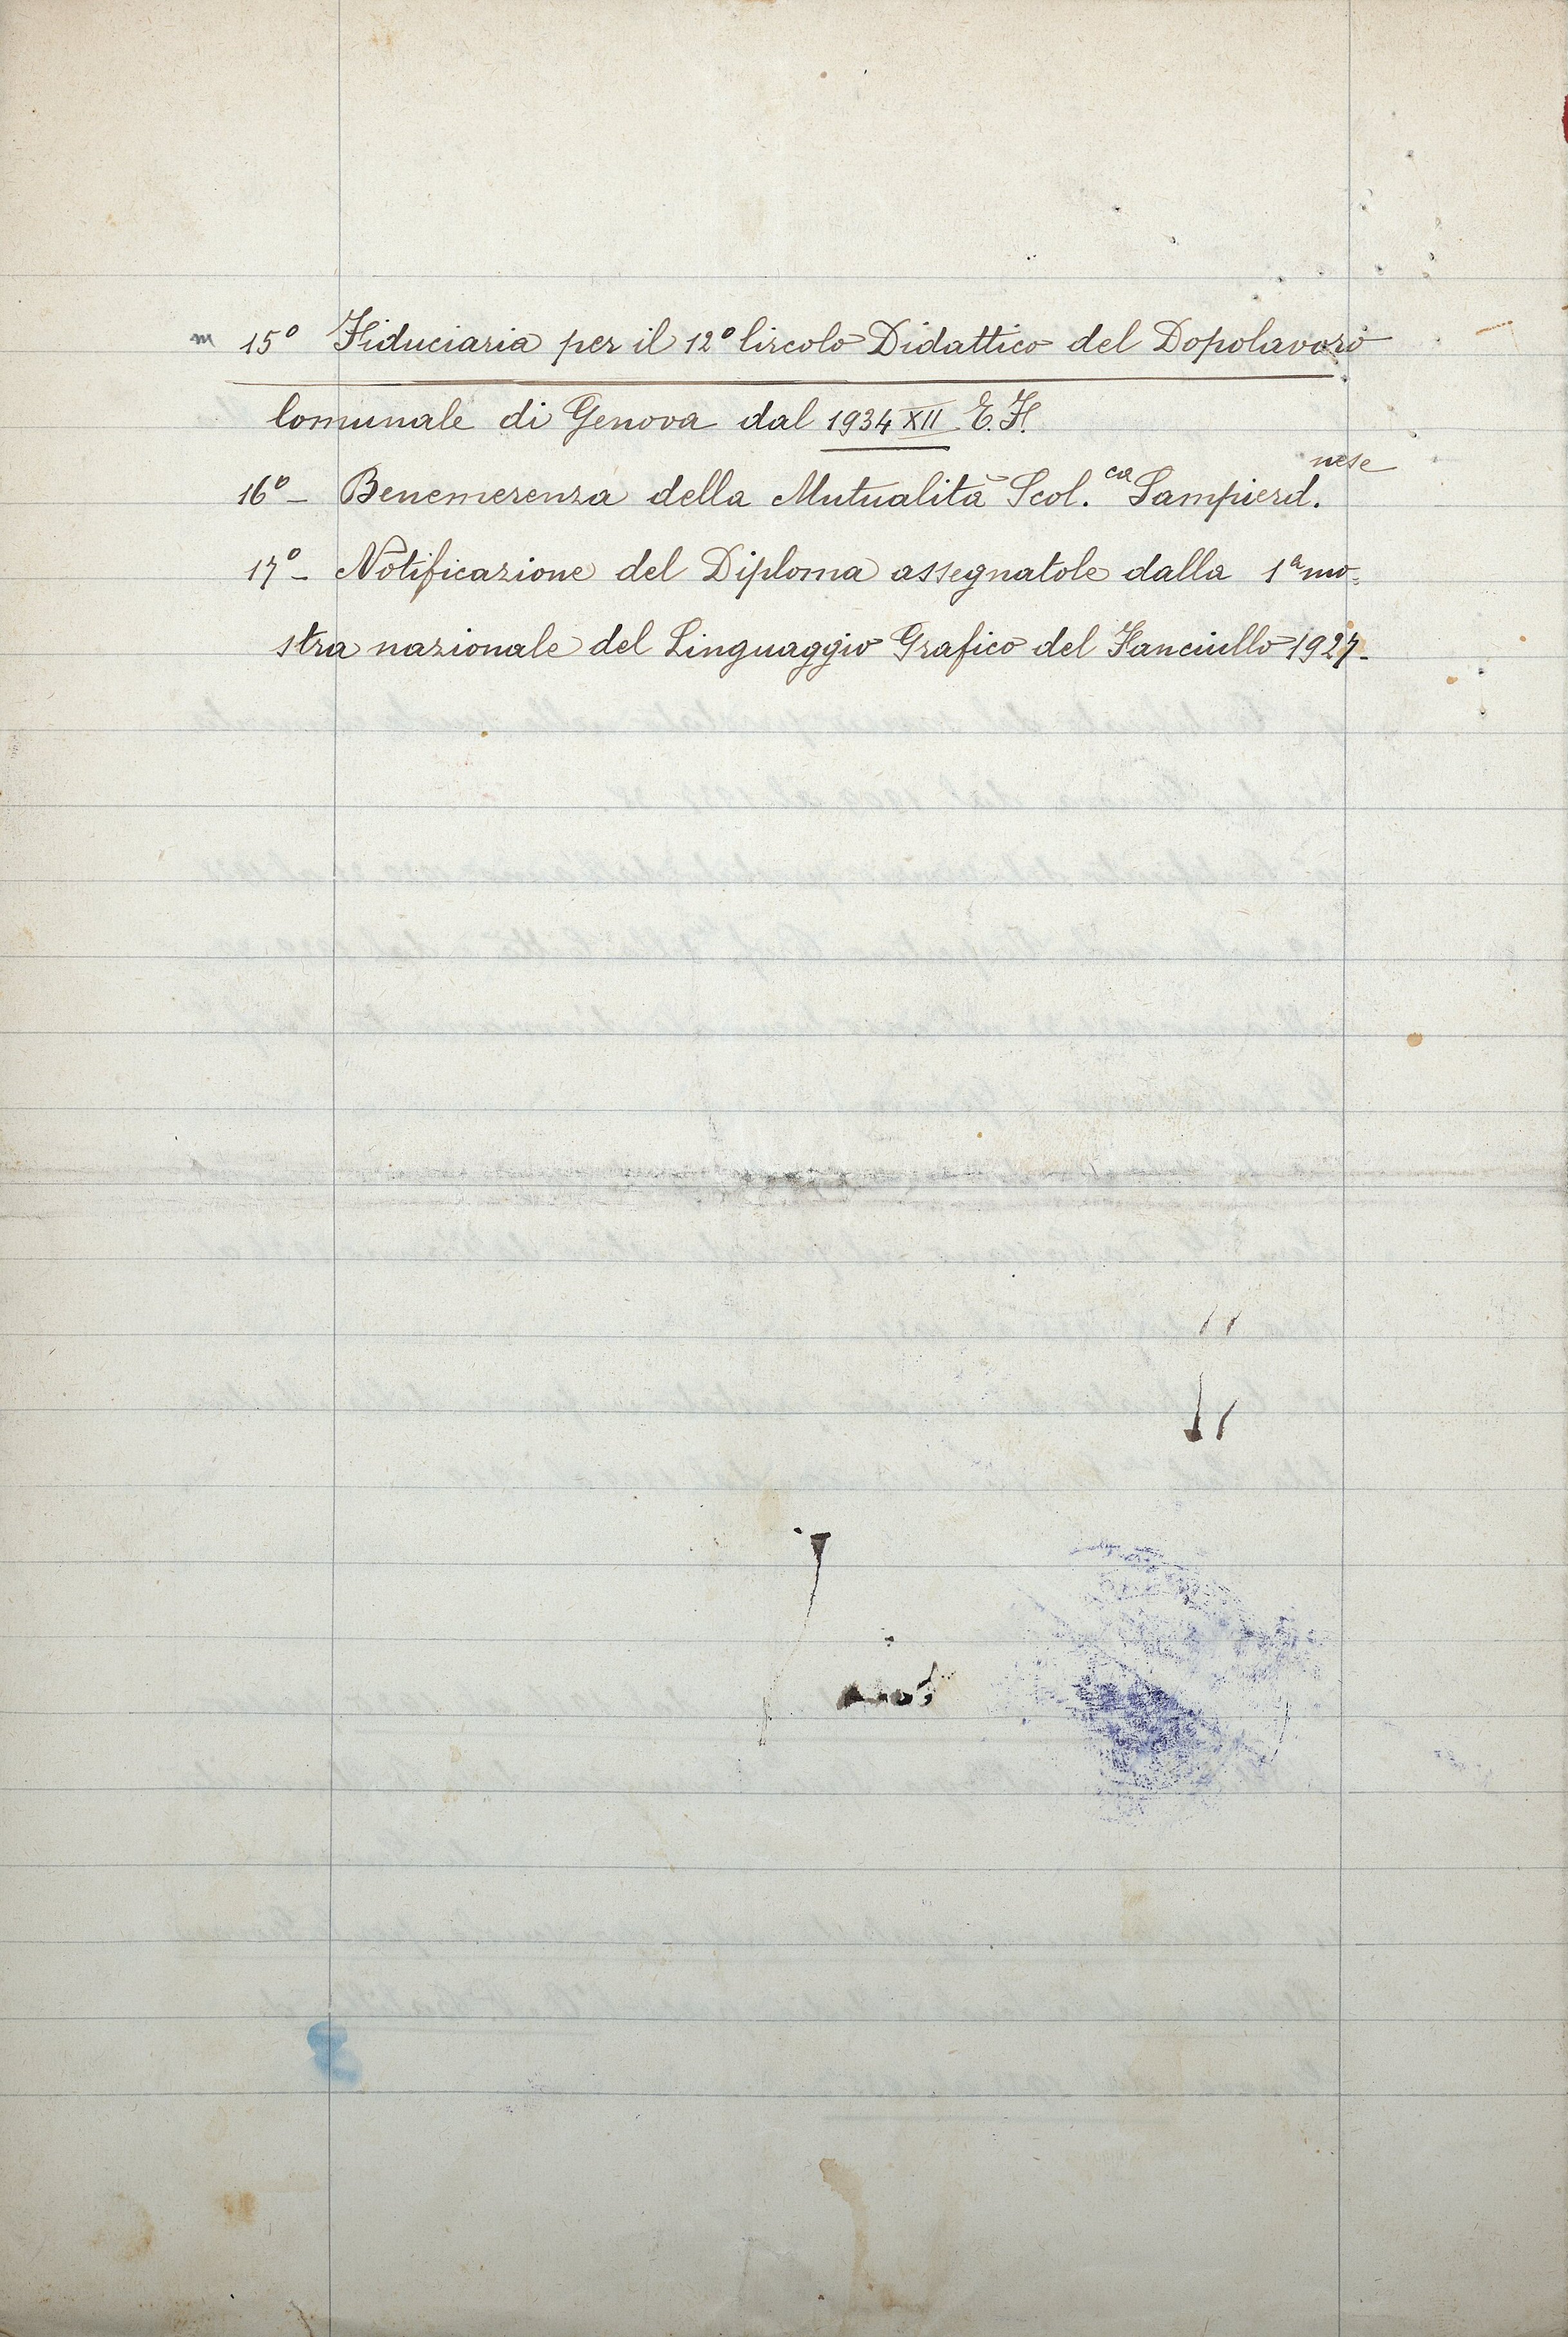 15º Fiduciaria per il 12º Circolo Didattico del Dopolavoro
Comunale di Genova dal 1934 XII E.F.
16º - Benemerenza della Mutualità Scol.ca Sampierd.nese
17º - Notificazione del Diploma assegnatole dalla 1ª mo-
stra nazionale del Linguaggio Grafico del Fanciullo 1927-
3